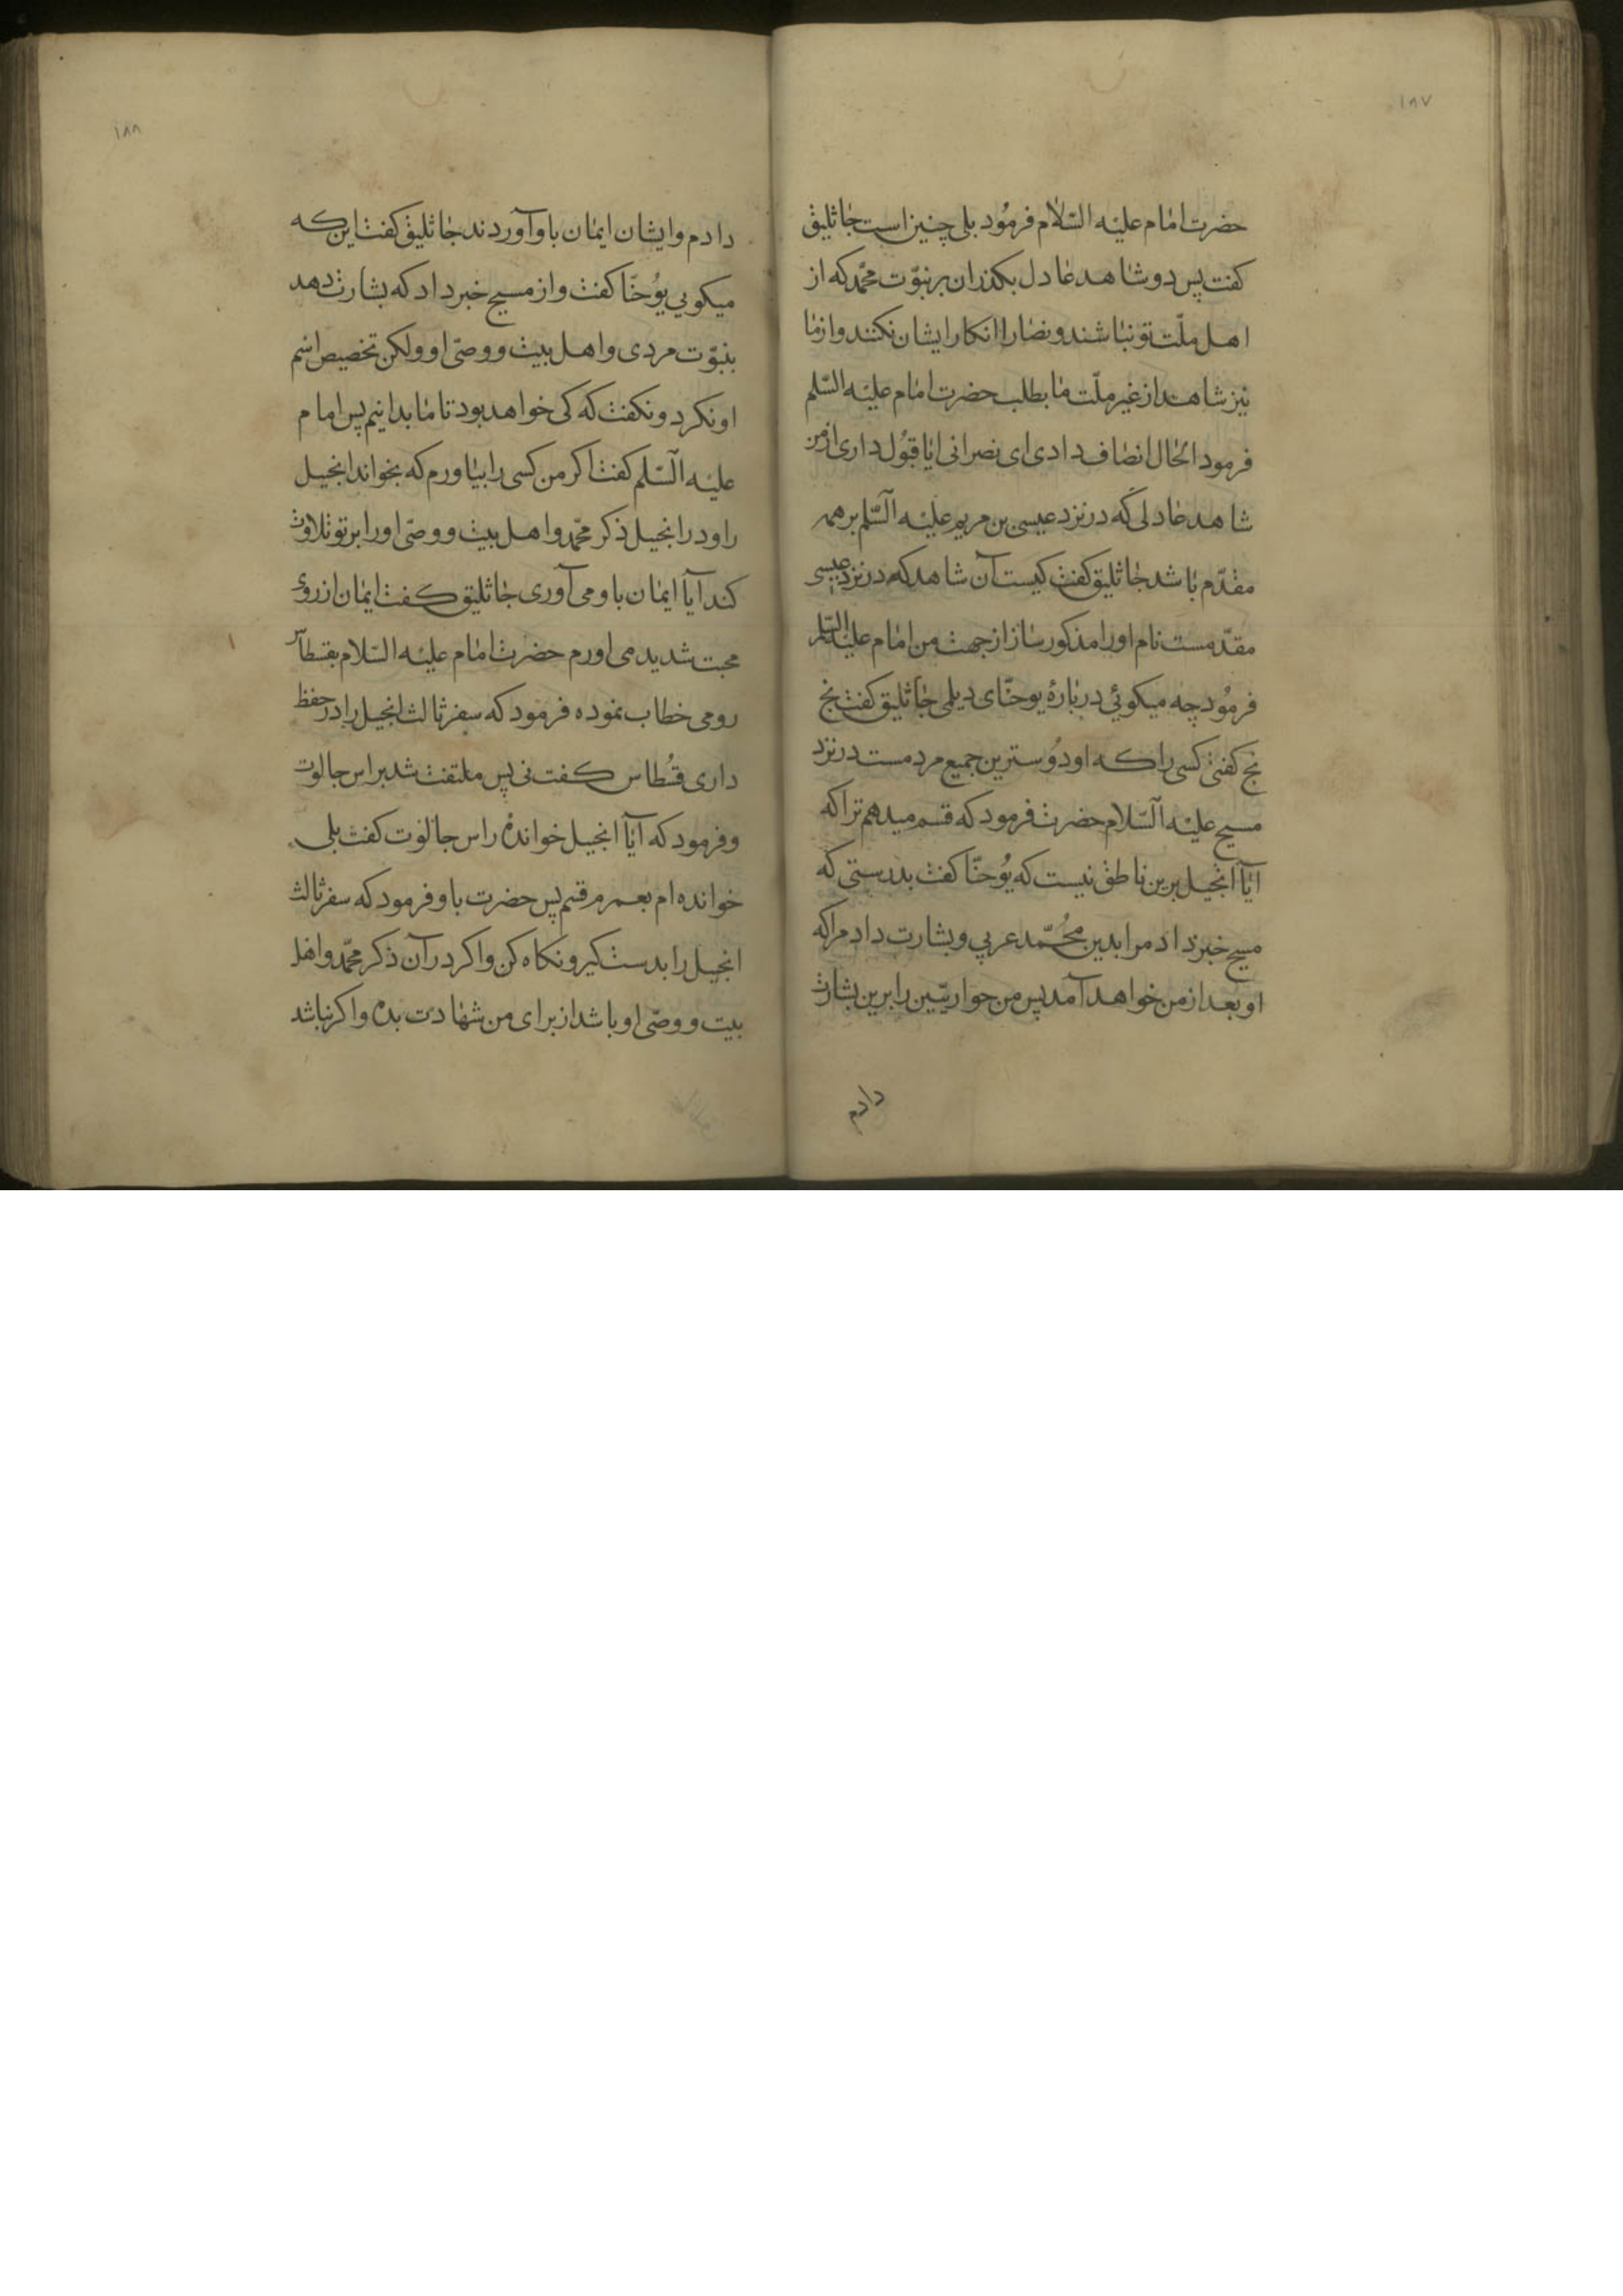 ۱۸۷
حضرت امام علیه السّلام فرمُود بلی چنین است جاثلیق
کفت پس دو شاهد عادل بکذران بر نبوّت محمّد که از
اهل ملّت تو نباشند و نصارا انکار ایشان نکنند و از ما
نیز شاهد از غیر ملّت ما بطلب حضرت امام علیه السّلم
فرمود الحال انصاف دادی ای نصرانی ایا قبُول داری از من
شاهد عادلی که در نزد عیسی بن مریم علیه السّلم بر همه
مقدّم باشد جاثلیق کفت کیست آن شاهد که در نزد عیسی
مقدّمست نام او را مذکور ساز از جهت من امام علیه السّلم
فرمُود چه میکوئی در بارهٔ یوحنّای دیلمی جاثلیق کفت بخ
بخ کفتی کسی را که او دوُسترین جمیع مردمست در نزد
مسیح علیه السّلام حضرت فرمود که قسم میدهم ترا که
ایا انجیل برین ناطق نیست که یُوحنّا کفت بدرستی که
مسیح خبر داد مرا بدین محُمّد عربی و بشارت داد مرا که
او بعد از من خواهد آمد پس من حواریّین را برین بشارت
دادم
۱۸۸
دادم و ایشان ایمان باو آوردند جاثلیق کفت این که
میکویی یوُحنّا کفت و از مسیح خبر داد که بشارت دهد
بنبوّت مردی و اهل بیت و وصّی او ولکن تخصیص اسم
او نکرد و نکفت که کی خواهد بود تا ما بدانیم پس امام
علیه السّلم کفت اکر من کسی را بیاورم که بخواند انجیل
را و در انجیل ذکر محمّد و اهل بیت و وصّی او را بر تو تلاوت
کند آیا ایمان باو می آوری جاثلیق کفت ایمان از روی
محبت شدید می اورم حضرت امام علیه السّلام بقسطاس
رومی خطاب نموده فرمود که سفر ثالث انجیل را در حفظ
داری قسُطاس کفت نی پس ملتفت شد براس جالوت
و فرمود که آیا انجیل خواندهٔ راس جالوت کفت بلی
خوانده ام بعمرم قسم پس حضرت باو فرمود که سفر ثالث
انجیل را بدست کیر و نکاه کن و اکر در آن ذکر محمّد و اهل
بیت و وصّی او باشد از برای من شهادت بده و اکر نباشد